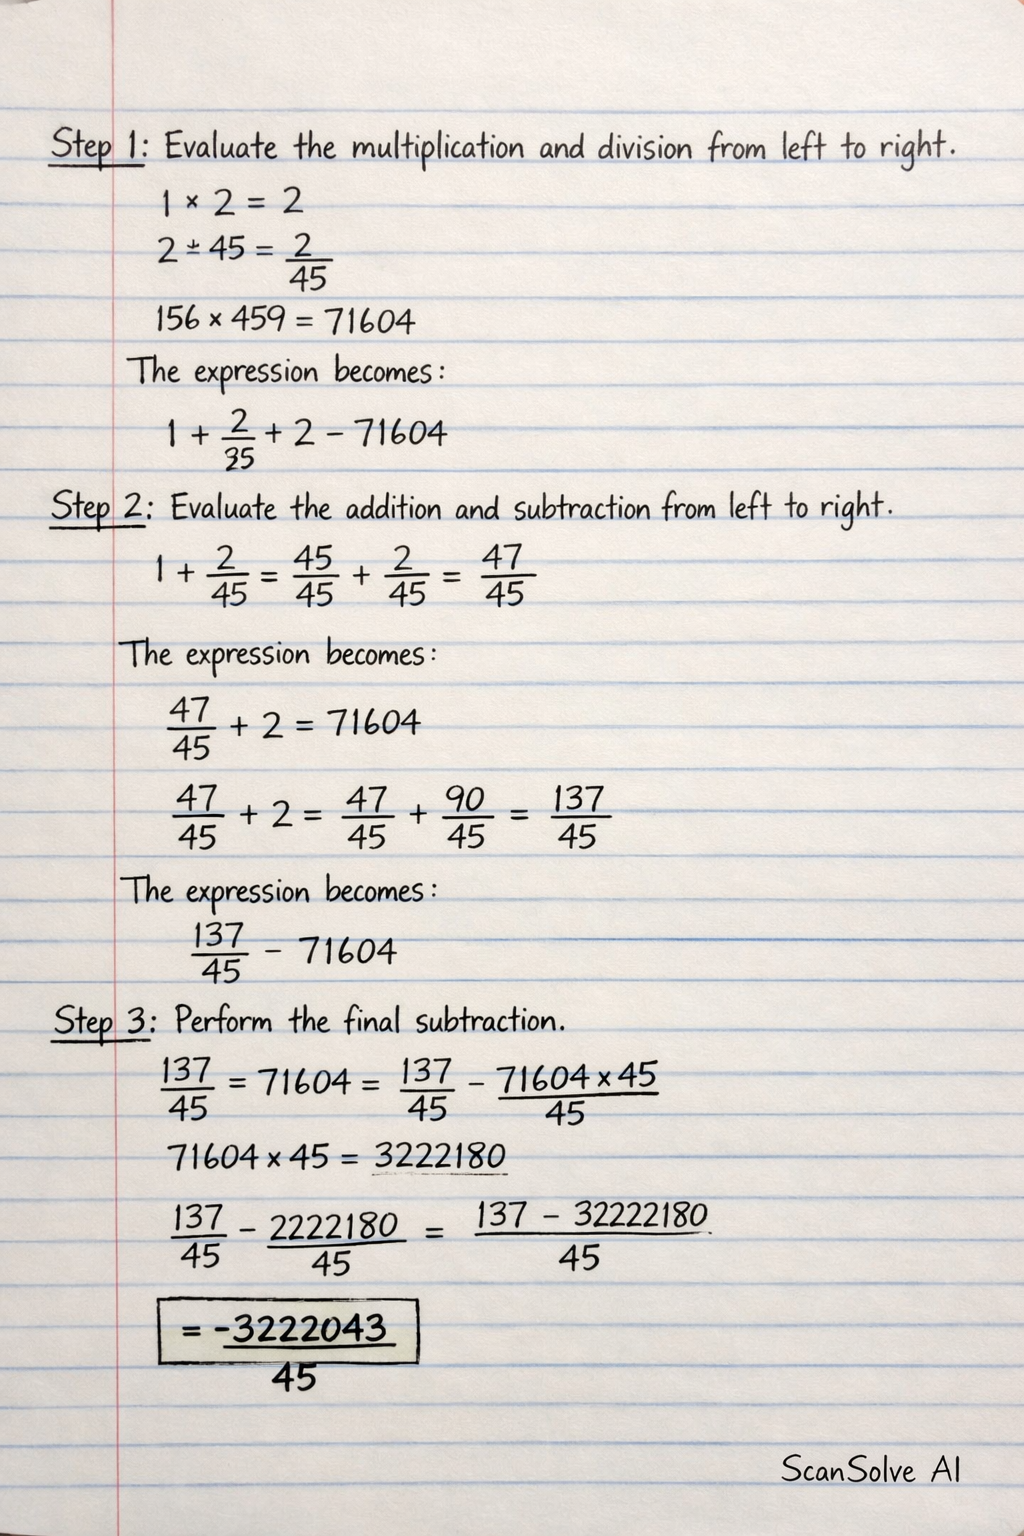 Step 1: Evaluate the multiplication and division from left to right.
1 × 2 = 2
2 ± 45 = 2/45
156 × 459 = 71604
The expression becomes:
1 + 2/35 + 2 − 71604
Step 2: Evaluate the addition and subtraction from left to right.
1 + 2/45 = 45/45 + 2/45 = 47/45
The expression becomes:
47/45 + 2 = 71604
47/45 + 2 = 47/45 + 90/45 = 137/45
The expression becomes:
137/45 − 71604
Step 3: Perform the final subtraction.
137/45 = 71604 = 137/45 − 71604 × 45/45
71604 × 45 = 3222180
137/45 − 2222180/45 = 137 − 32222180/45
= -3222043/45
ScanSolve AI